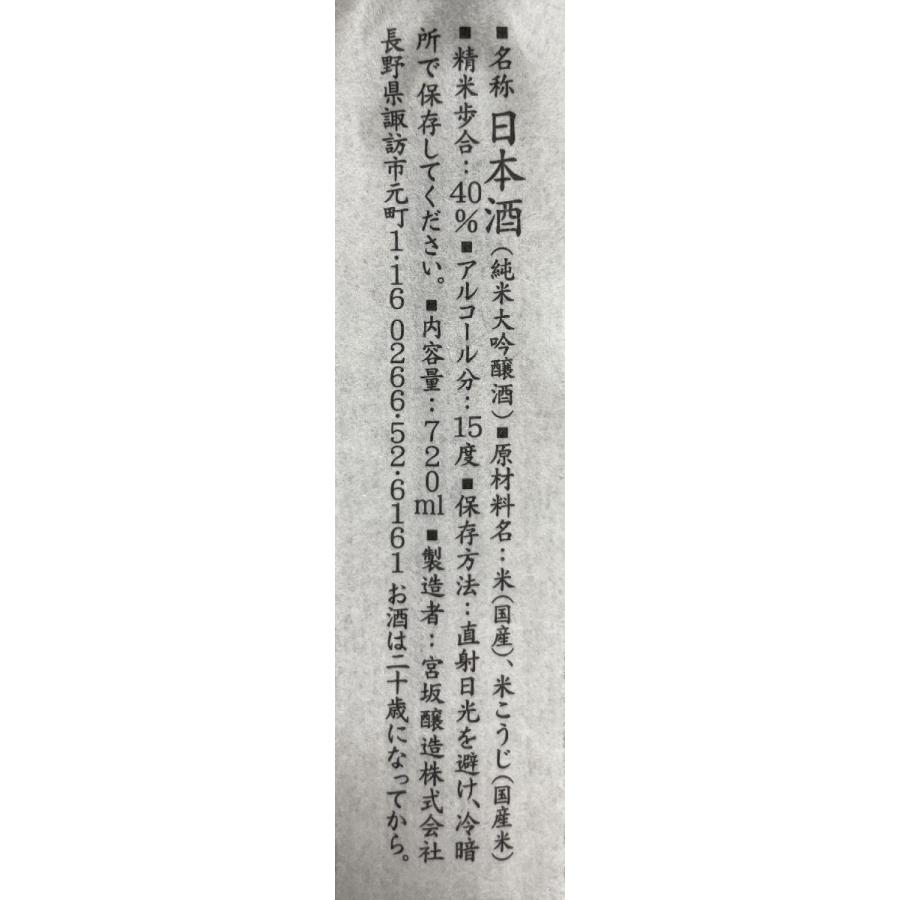 ■名称 日本酒（純米大吟醸酒）■原材料名：米（国産）、米こうじ（国産米）
■精米歩合：40％■アルコール分：15度■保存方法：直射日光を避け、冷暗
所で保存してください。■内容量：720ml■製造者：宮坂醸造株式会社
長野県諏訪市元町1・16 0266・52・6161 お酒は二十歳になってから。